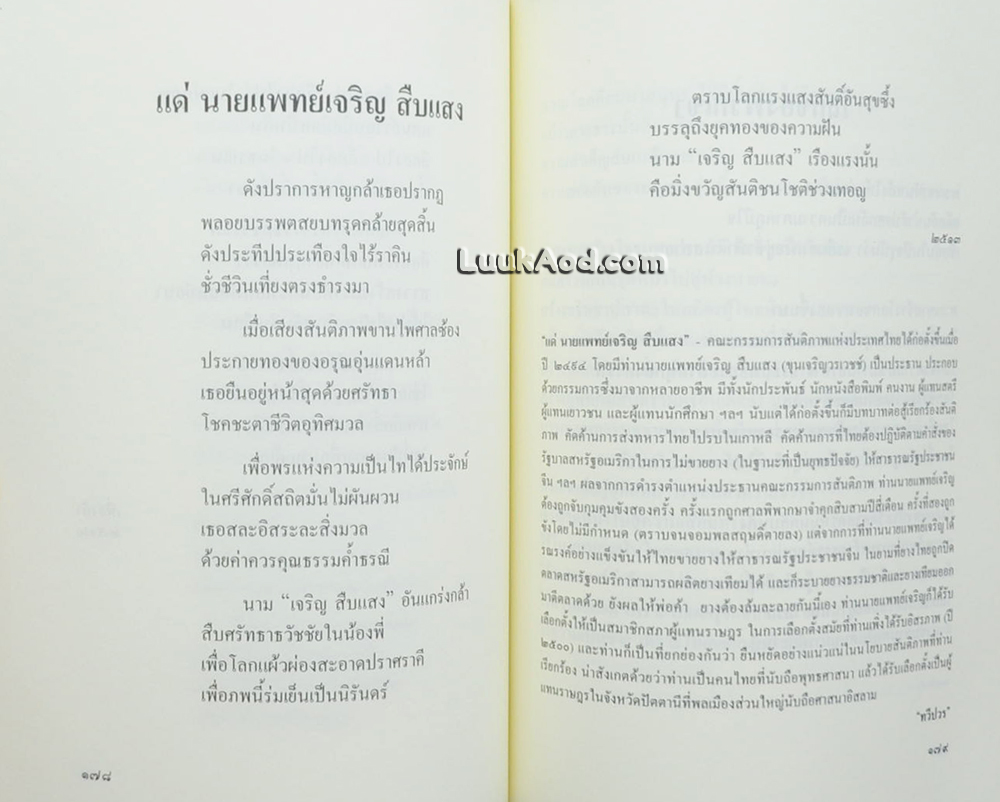 แด่ นายแพทย์เจริญ สืบแสง
ดังปราการหาญกล้าเธอปรากฏ
พลอยบรรพตสยบทรุดคล้ายสุดสิ้น
ดังประทีปประเทืองใจไร้ราคิน
ชั่วชีวินเที่ยงตรงธำรงมา
เมื่อเสียงสันติภาพขานไพศาลซ้อง
ประกายทองของอรุณอุ่นแดนหล้า
เธอยืนอยู่หน้าสุดด้วยศรัทธา
โชคชะตาชีวิตอุทิศมวล
เพื่อพรแห่งความเป็นไทได้ประจักษ์
ในศรีศักดิ์สถิตมั่นไม่ผันผวน
เธอสละอิสระละสิ่งมวล
ด้วยค่าควรคุณธรรมค้ำธรณี
นาม “เจริญ สืบแสง” อันแกร่งกล้า
สืบศรัทธาธวัชชัยในน้องพี่
เพื่อโลกแผ้วผ่องสะอาดปราศราคี
เพื่อภพนี้ร่มเย็นเป็นนิรันดร์
๑๗๘
ตราบโลกแรงแสงสันติ์อันสุขซึ้ง
บรรลุถึงยุคทองของความฝัน
นาม “เจริญ สืบแสง” เรืองแรงนั้น
คือมิ่งขวัญสันติชนโชติช่วงเทอญ
๒๕๑๓
“แด่ นายแพทย์เจริญ สืบแสง” - คณะกรรมการสันติภาพแห่งประเทศไทยได้ก่อตั้งขึ้นเมื่อ
ปี ๒๔๙๔ โดยมีท่านนายแพทย์เจริญ สืบแสง (ขุนเจริญวรเวชช์) เป็นประธาน ประกอบ
ด้วยกรรมการซึ่งมาจากหลายอาชีพ มีทั้งนักประพันธ์ นักหนังสือพิมพ์ คนงาน ผู้แทนสตรี
ผู้แทนเยาวชน และผู้แทนนักศึกษา ฯลฯ นับแต่ได้ก่อตั้งขึ้นก็มีบทบาทต่อสู้เรียกร้องสันติ
ภาพ คัดค้านการส่งทหารไทยไปรบในเกาหลี คัดค้านการที่ไทยต้องปฏิบัติตามคำสั่งของ
รัฐบาลสหรัฐอเมริกาในการไม่ขายยาง (ในฐานะที่เป็นยุทธปัจจัย) ให้สาธารณรัฐประชาชน
จีน ฯลฯ ผลจากการดำรงตำแหน่งประธานคณะกรรมการสันติภาพ ท่านนายแพทย์เจริญ
ต้องถูกจับกุมคุมขังสองครั้ง ครั้งแรกถูกศาลพิพากษาจำคุกสิบสามปีสี่เดือน ครั้งที่สองถูก
ขังโดยไม่มีกำหนด (ตราบจนจอมพลสฤษดิ์ตายลง) แต่จากการที่ท่านนายแพทย์เจริญได้
รณรงค์อย่างแข็งขันให้ไทยขายยางให้สาธารณรัฐประชาชนจีน ในยามที่ยางไทยถูกปิด
ตลาดสหรัฐอเมริกาสามารถผลิตยางเทียมได้ และก็ระบายยางธรรมชาติและยางเทียมออก
มาตีตลาดด้วย ยังผลให้พ่อค้า ยางต้องล้มละลายกันนี้เอง ท่านนายแพทย์เจริญก็ได้รับ
เลือกตั้งให้เป็นสมาชิกสภาผู้แทนราษฎร ในการเลือกตั้งสมัยที่ท่านเพิ่งได้รับอิสรภาพ (ปี
๒๕๐๐) และท่านก็เป็นที่ยกย่องกันว่า ยืนหยัดอย่างแน่วแน่ในนโยบายสันติภาพที่ท่าน
เรียกร้อง น่าสังเกตด้วยว่าท่านเป็นคนไทยที่นับถือพุทธศาสนา แล้วได้รับเลือกตั้งเป็นผู้
แทนราษฎรในจังหวัดปัตตานีที่พลเมืองส่วนใหญ่นับถือศาสนาอิสลาม
“ทวีปวร”
๑๗๙
LuukAod.com